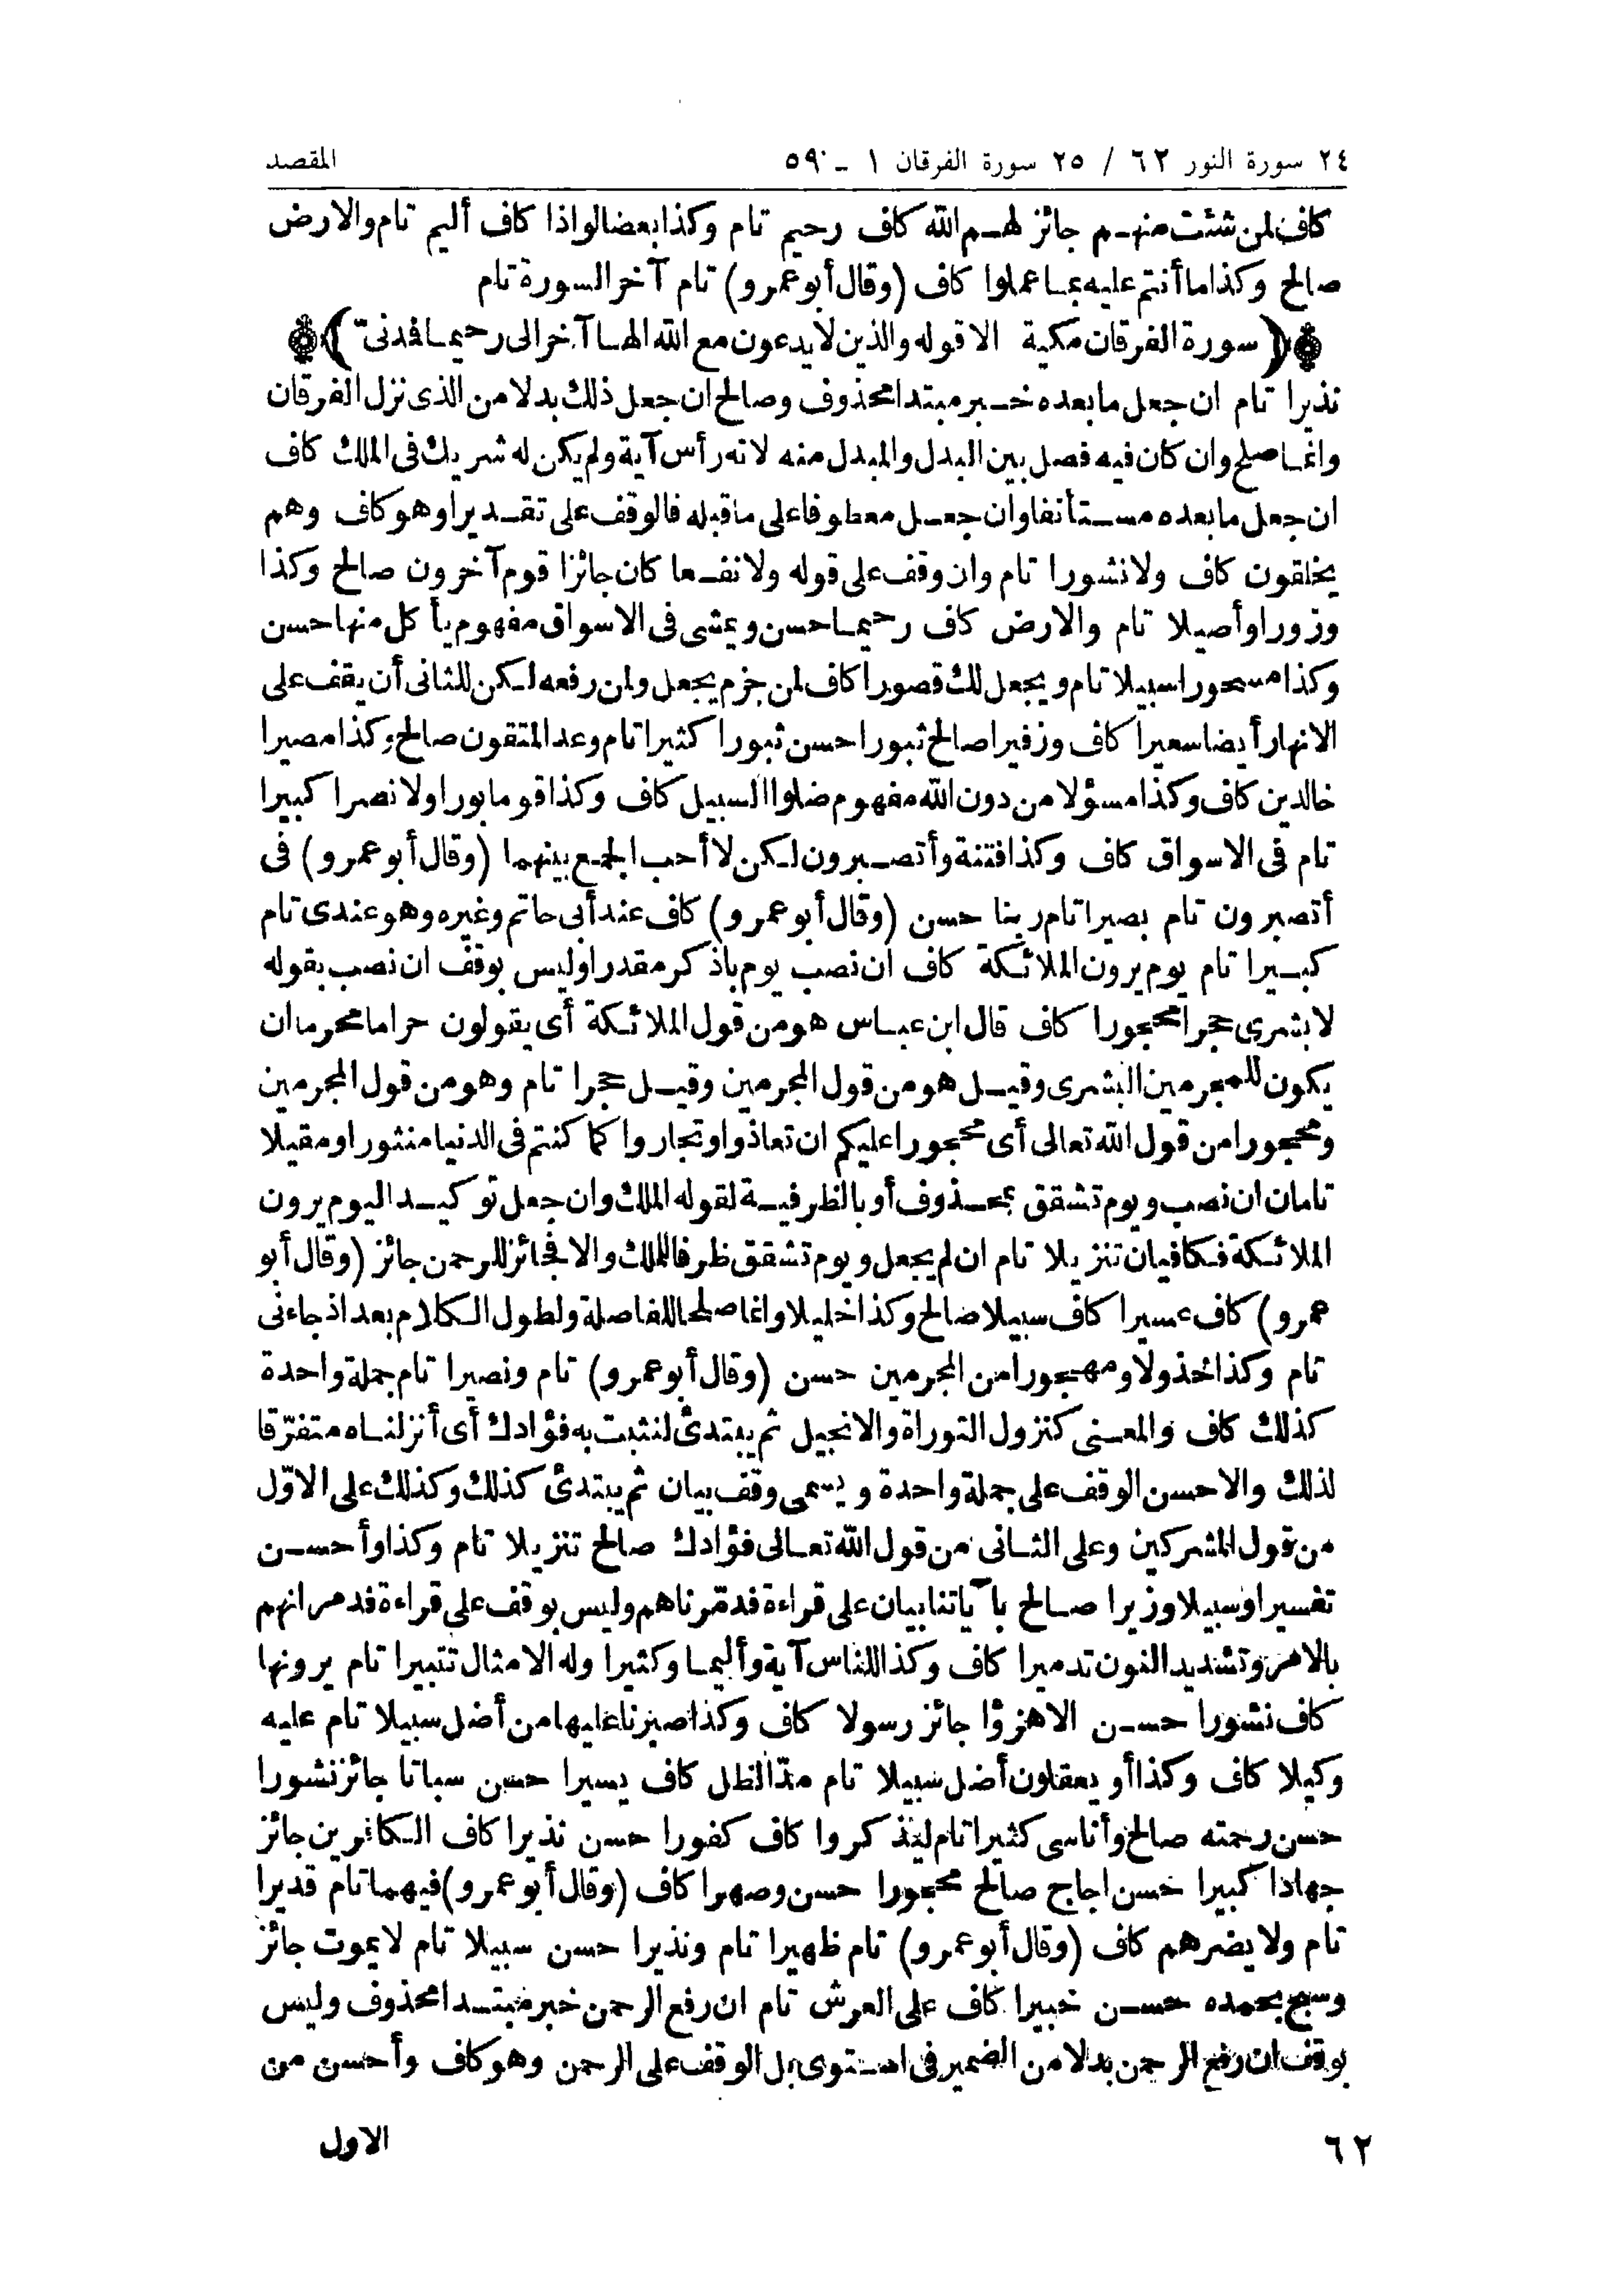 ٢٤ سورة النور ٦٢ / ٢٥ سورة الفرقان ١ ـ ٥٩
المقصد
كاف لمن شئت منهم جائز لهم الله كاف رحيم تام وكذا بعضا لواذا كاف أليم تام والارض
صالح وكذا ما أنتم عليه بما عملوا كاف (وقال أبو عمرو) تام آخر السورة تام
(سورة الفرقان مكية الا قوله والذين لا يدعون مع الله الها آخر الى رحيما فدنى)
نذيرا تام ان جعل ما بعده خبر مبتدا محذوف وصالح ان جعل ذلك بدلا من الذى نزل الفرقان
وانما صلح وان كان فيه فصل بين البدل والمبدل منه لانه رأس آية ولم يكن له شريك فى الملك كاف
ان جعل ما بعده مستأنفا وان جعل معطوفا على ما قبله فالوقف على تقديرا وهو كاف وهم
يخلقون كاف ولا نشورا تام وان وقف على قوله ولا نفعا كان جائزا قوم آخرون صالح وكذا
وزورا وأصيلا تام والارض كاف رحيما حسن ويمشى فى الاسواق مفهوم يأكل منها حسن
وكذا مسحورا سبيلا تام ويجعل لك قصورا كاف لمن جزم يجعل ولمن رفعه لكن للثانى أن يقف على
الانهار أيضا سعيرا كاف وزفيرا صالح ثبورا حسن ثبورا كثيرا تام وعد المتقون صالح وكذا مصيرا
خالدين كاف وكذا مسؤلا من دون الله مفهوم ضلوا السبيل كاف وكذا قوما بورا ولا نصرا كبيرا
تام فى الاسواق كاف وكذا فتنة وأتصبرون لكن لا أحب الجمع بينهما (وقال أبو عمرو) فى
أتصبرون تام بصيرا تام ربنا حسن (وقال أبو عمرو) كاف عند أبى حاتم وغيره وهو عندى تام
كبيرا تام يوم يرون الملائكة كاف ان نصب يوم باذكر مقدرا وليس بوقف ان نصب بقوله
لا بشرى حجرا محجورا كاف قال ابن عباس هو من قول الملائكة أى يقولون حراما محرما ان
يكون للمجرمين البشرى وقيل هو من قول المجرمين وقيل حجرا تام وهو من قول المجرمين
ومحجورا من قول الله تعالى أى محجورا عليكم ان تعاذوا وتجاروا كما كنتم فى الدنيا منثورا ومقيلا
تامان ان نصب ويوم تشقق بمحذوف أو بالظرفية لقوله الملك وان جعل توكيد اليوم يرون
الملائكة فكافيان تنزيلا تام ان لم يجعل ويوم تشقق ظرفا للملك والا فجائز للرحمن جائز (وقال أبو
عمرو) كاف عسيرا كاف سبيلا صالح وكذا خليلا وانما صلحا للفاصلة ولطول الكلام بعد اذ جاءنى
تام وكذا خذولا ومهجورا من المجرمين حسن (وقال أبو عمرو) تام ونصيرا تام جملة واحدة
كذلك كاف والمعنى كنزول التوراة والانجيل ثم يبتدئ لنثبت به فؤادك أى أنزلناه متفرّقا
لذلك والاحسن الوقف على جملة واحدة ويسمى وقف بيان ثم يبتدئ كذلك وكذلك على الاوّل
من قول المشركين وعلى الثانى من قول الله تعالى فؤادك صالح تنزيلا تام وكذا وأحسن
تفسيرا وسبيلا وزيرا صالح بآياتنا بيان على قراءة فدمّرناهم وليس بوقف على قراءة فدمرانهم
بالامر وتشديد النون تدميرا كاف وكذا للناس آية وأليما وكثيرا وله الامثال تتبيرا تام يرونها
كاف نشورا حسن الا هزؤا جائز رسولا كاف وكذا صبرنا عليها من أضل سبيلا تام عليه
وكيلا كاف وكذا أو يعقلون أضل سبيلا تام مدّ الظل كاف يسيرا حسن سباتا جائز نشورا
حسن رحمته صالح وأناسى كثيرا تام ليذكروا كاف كفورا حسن نذيرا كاف الكافرين جائز
جهادا كبيرا حسن اجاج صالح محجورا حسن وصهرا كاف (وقال أبو عمرو) فيهما تام قديرا
تام ولا يضرهم كاف (وقال أبو عمرو) تام ظهيرا تام ونذيرا حسن سبيلا تام لا يموت جائز
وسبح بحمده حسن خبيرا كاف على العرش تام ان رفع الرحمن خبر مبتدا محذوف وليس
بوقف ان رفع الرحمن بدلا من الضمير فى استوى بل الوقف على الرحمن وهو كاف وأحسن من
الاول
٦٢